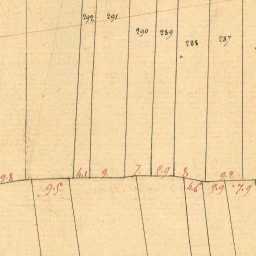 292 291
290 289
288 287
9.8 4.1 9. 7. 5.9 8 9.2
9.5 4.6 9.9 7.9